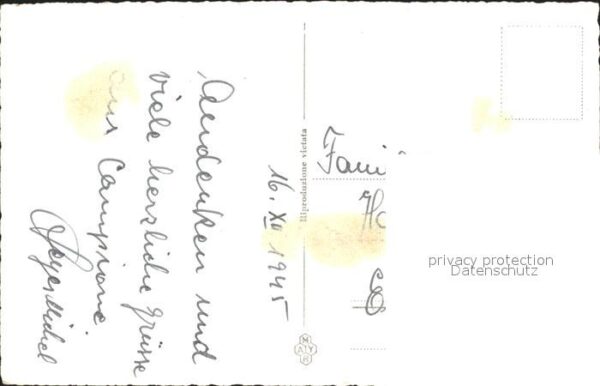 Andenken und
viele herzliche Grüsse
aus Campione
16. XII 1945
Riproduzione vietata
Fami
privacy protection
Datenschutz